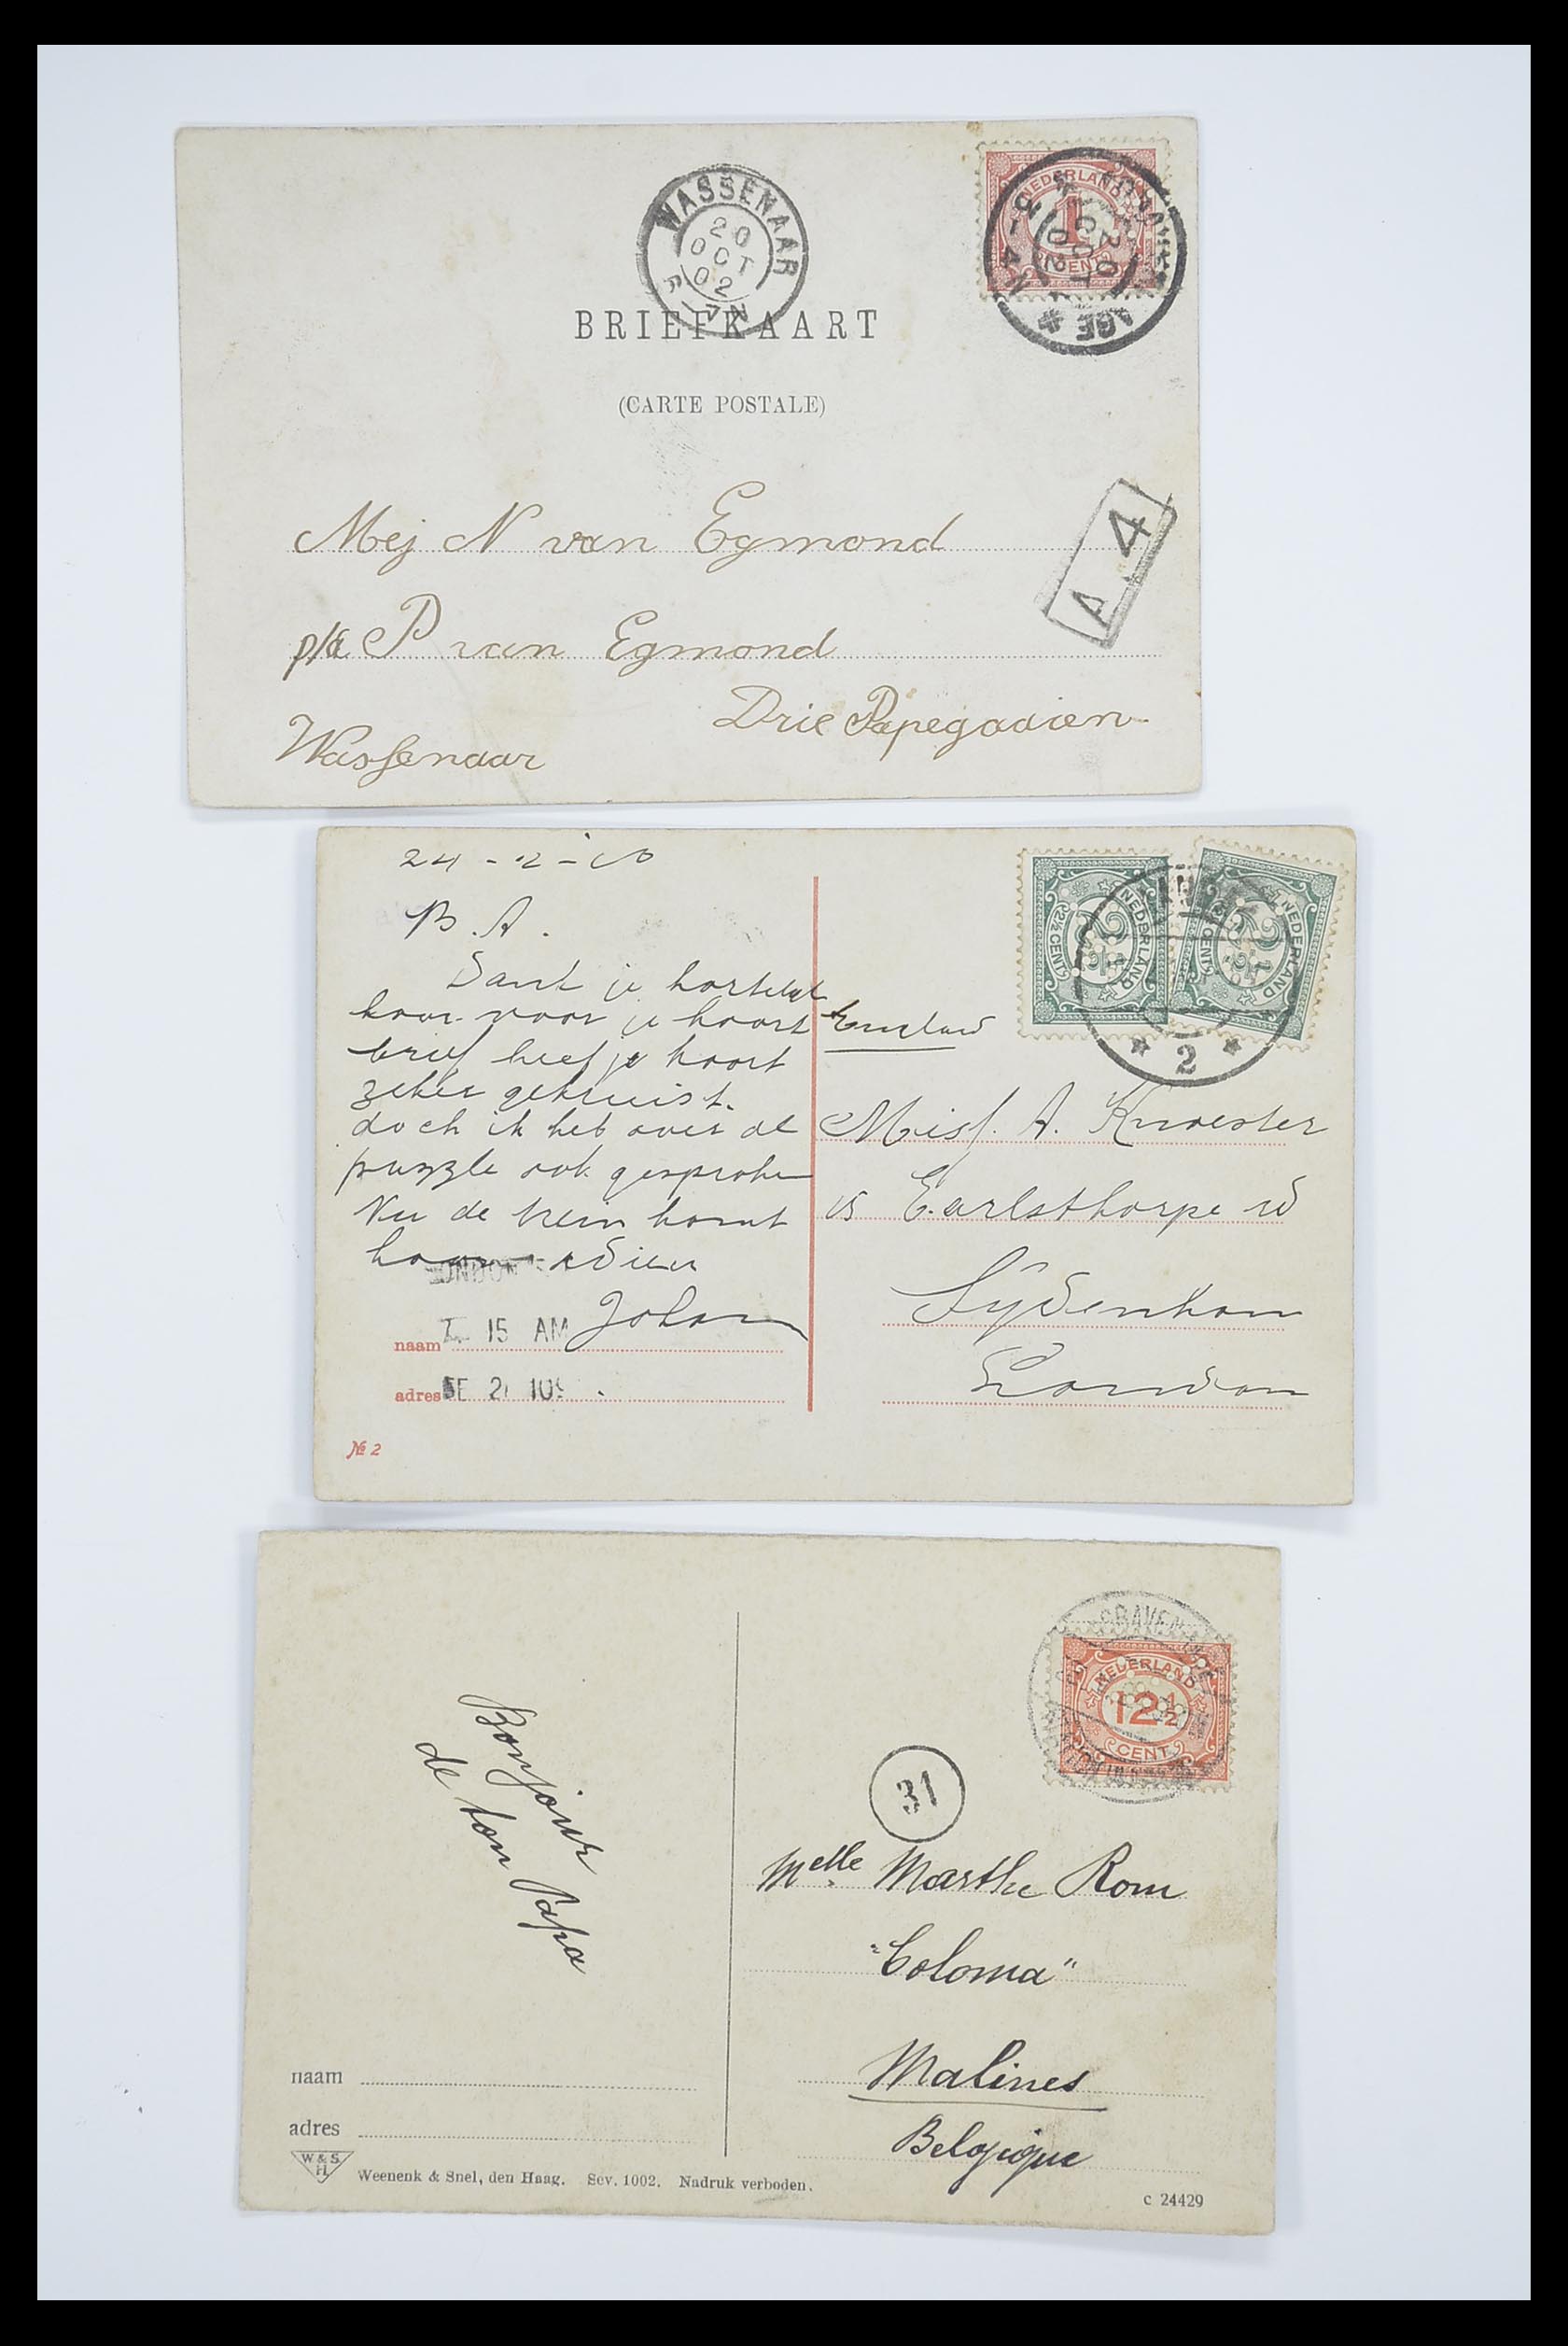 WASSENAAR
20
OCT
02
NEDERLAND
1
CENT
20
OCT
02
BRIEFKAART
(CARTE POSTALE)
A.4
Mej N van Egmond
p/a P van Egmond
Drie Papegaaien
Wassenaar
24-2-10
B.A.
Dank je
voor je
brief heef je
zeker gekruist.
doch ik heb over de
puzzle ook gesproken
Nu de trein komt
adieu
Johan
LONDON
15 AM
naam
adres
№ 2
NEDERLAND
2½ CENT
NEDERLAND
CENT
2
Miss. A. Knoester
15 Earlsthorpe
Sydenham
London
Bonjour
de ton Papa
naam
adres
W & S.
H.
Weenenk & Snel, den Haag. Sev. 1002. Nadruk verboden.
NEDERLAND
12½
CENT
31
Melle Marthe Rom
"Coloma"
Malines
Belgique
c 24429